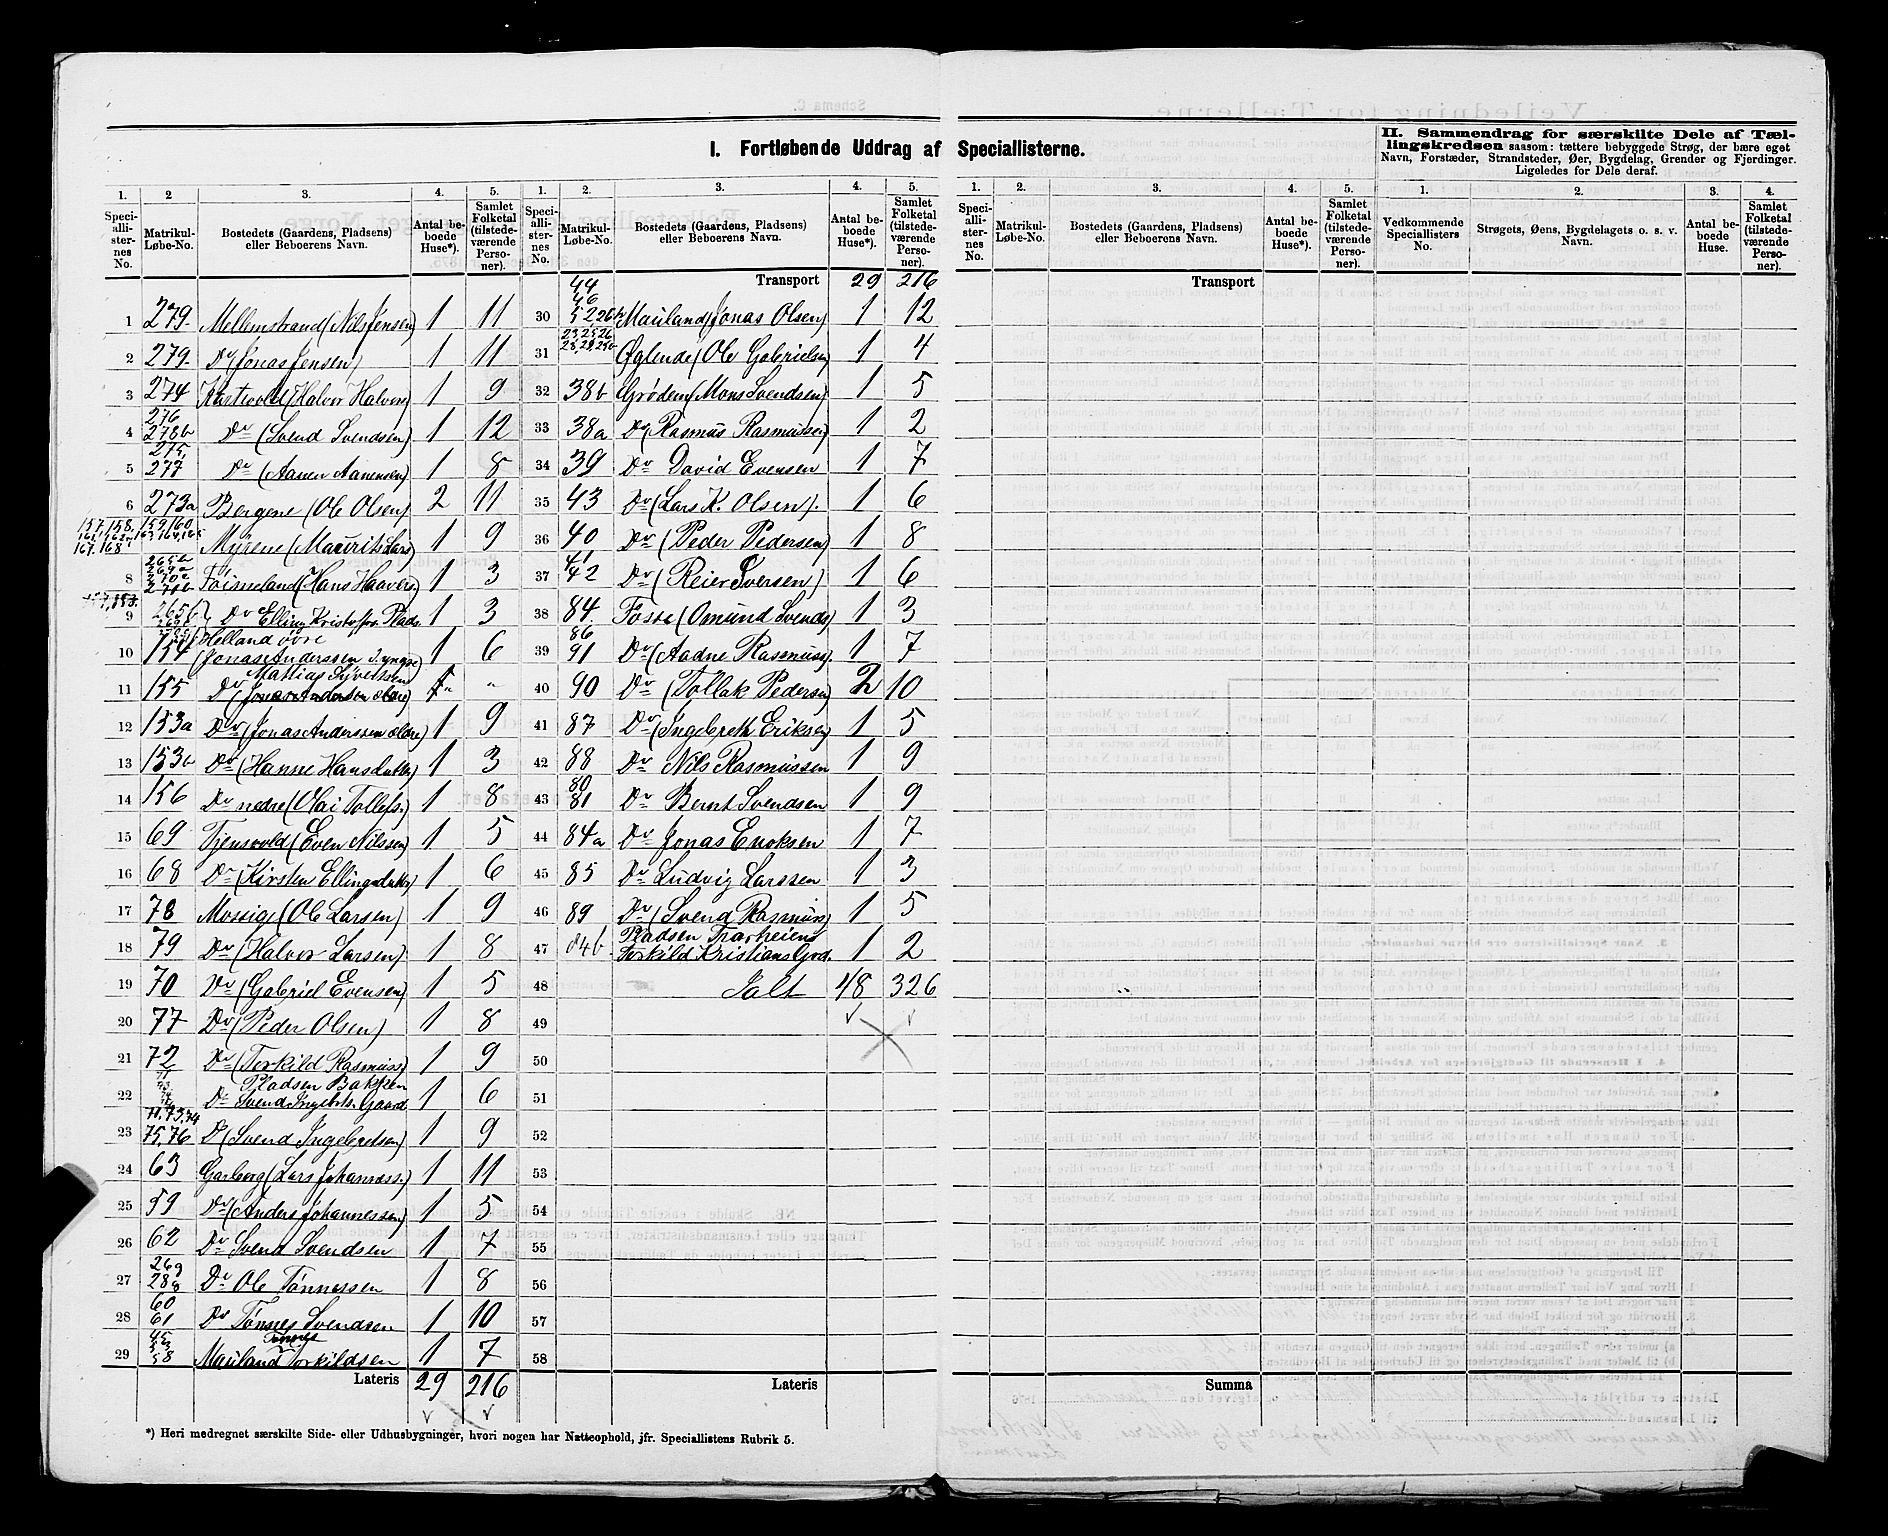 I. Fortløbende Uddrag af Speciallisterne.
II. Sammendrag for særskilte Dele af Tællingskredsen saasom: tættere bebyggede Strøg, der bære eget Navn, Forstæder, Strandsteder, Øer, Bygdelag, Grender og Fjerdinger. Ligeledes for Dele deraf.
1. 2 3. 4. 5. 1. 2. 3. 4. 5. 1. 2. 3. 4. 5. 1. 2. 3. 4.
Speciallisternes No. Matrikul-Løbe-No. Bostedets (Gaardens, Pladsens) eller Beboerens Navn. Antal beboede Huse*). Samlet Folketal (tilstedeværende Personer).
Speciallisternes No. Matrikul-Løbe-No. Bostedets (Gaardens, Pladsens) eller Beboerens Navn. Antal beboede Huse*). Samlet Folketal (tilstedeværende Personer).
Speciallisternes No. Matrikul-Løbe-No. Bostedets (Gaardens, Pladsens) eller Beboerens Navn. Antal beboede Huse*). Samlet Folketal (tilstedeværende Personer).
Vedkommende Speciallisters No. Strøgets, Øens, Bygdelagets o. s. v. Navn. Antal beboede Huse. Samlet Folketal (tilstedeværende Personer).
1 279. Mellemstrand (Nils Jensen) 1 11
2 279. Do (Jonas Jensen) 1 11
3 274 (Halvor Halvors) 1 9
4 276 278b Do (Svend Svendsen) 1 12
5 275, 277 Do (Aanen Aanensen) 1 8
6 273a Bergene (Ole Olsen) 2 11
157, 158, 159, 160
167. 168 Myrene (Maurits Lars) 1 9
8 265a 269a 270a 271b Foismeland (Hans Haavors.) 1 3
9 265b Do Elling Kristoffers. Plads. 1 3
10 154 Helland övre (Jonas Anderssen d. yngre) 1 6
11 155 Do Mathias Syvertssen (Jonas Anderssen ældre) " "
12 153a Do (Jonas Anderssen ældre) 1 9
13 153b Do (Hanne Hansdatter) 1 3
14 156 Do nedre (Olai Tollefs.) 1 8
15 69 Tjensvold (Even Nilssen) 1 5
16 68 Do (Kirsten Ellingsdatter) 1 6
17 78 Mossige (Ole Larsen) 1 9
18 79 Do (Halvor Larsen) 1 8
19 70 Do (Gabriel Evensen) 1 5
20 77 Do (Peder Olsen) 1 8
21 72 Do (Torkild Rasmuss.) 1 9
22 Pladsen Bakken Do Svend Ingebrts. Gaard 1 6
23 71, 73, 74 75, 76 Do (Svend Ingebretsen) 1 9
24 63 Garborg (Lars Johanness.) 1 11
25 59 Do (Anders Johannessen) 1 5
26 62 Do Svend Svendsen 1 7
27 26g 28g Do Ole Tönnessen 1 8
28 60 61 Do Tønnes Svendsen 1 10
29 45 58 Mauland Tönnes Torkildsen 1 7
Lateris 29 216
Transport 29 216
30 44 46 52 26h Mauland (Jonas Olsen) 1 12
31 23, 25, 26 Øglende (Ole Gabrielsen) 1 4
32 38b Grødem (Mons Svendsen) 1 5
33 38a Do (Rasmus Rasmussen) 1 2
34 39 Do David Evensen 1 7
35 43 Do (Lars K. Olsen). 1 6
36 40 Do (Peder Pedersen) 1 8
37 41 42 Do (Reier Iversen) 1 6
38 84. Fosse (Omund Svends) 1 3
39 86 91 Do (Aadne Rasmuss). 1 7
40 90 Do (Tollak Pedersen) 2 10
41 87 Do (Ingebreth Eriksen) 1 5
42 88 Do Nils Rasmussen 1 9
43 80 81 Do Bernt Svendsen 1 9
44 84a Do Jonas Enoksen 1 7
45 85 Do Ludvig Larssen 1 3
46 89 Do (Svend Rasmuss) 1 5
47 84b. Pladsen Torkild Kristians Grd. 1 2
48 Ialt 48 326
49
50
51
52
53
54
55
56
57
58
Lateris
Transport
Summa
*) Heri medregnet særskilte Side- eller Udhusbygninger, hvori nogen har Natteophold, jfr. Speciallistens Rubrik 5.